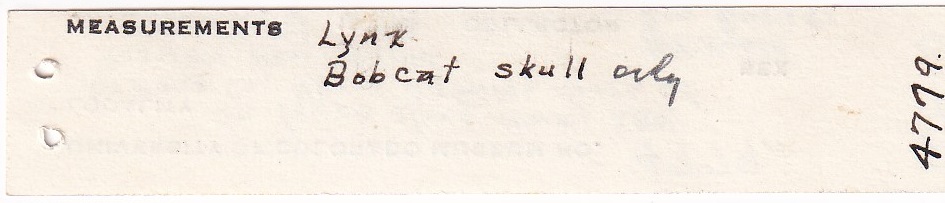 MEASUREMENTS
Lynx
Bobcat skull only
4779.